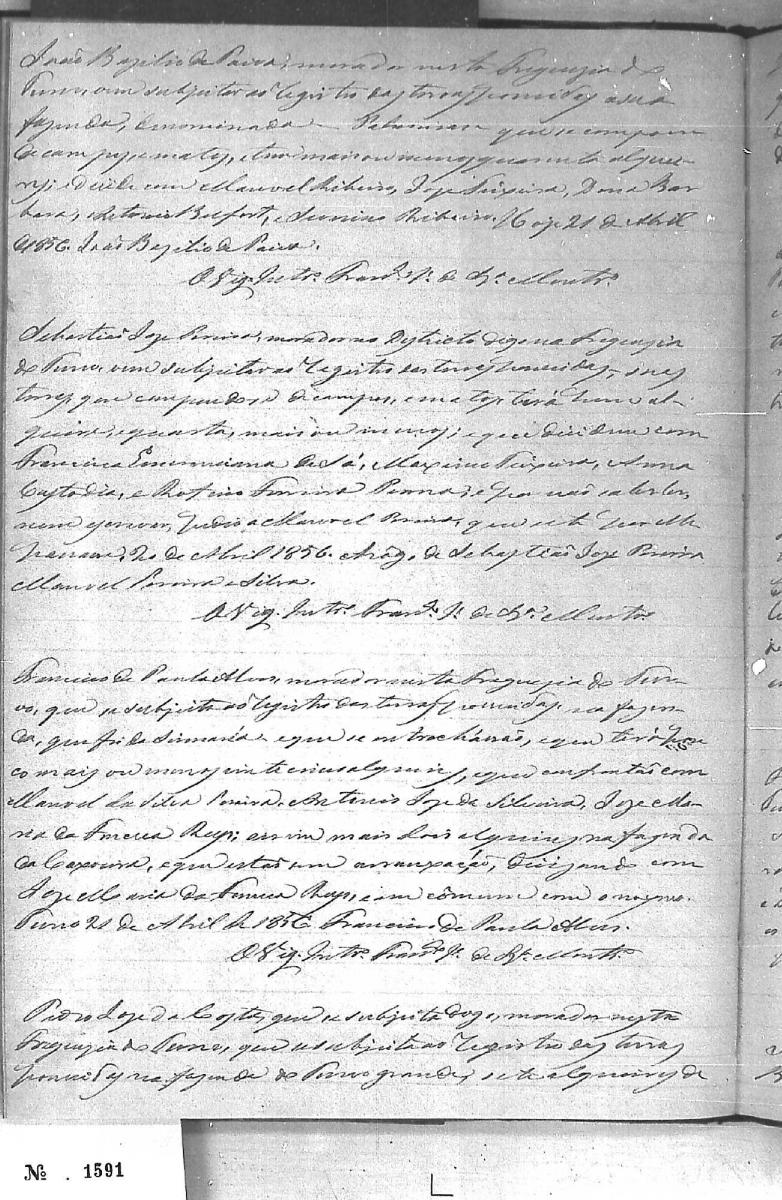 João Bazilio de Paiva, morador nesta Freguezia do
Turvo, vem subjeitar ao Registro das terras possuidas a sua
fazenda, denominada que se compoem
de campos, e mattos, e tem mais ou menos quarenta alquei-
res; e divide com Manoel Ribeiro, Joze Teixeira, Dona Bar
bara, Antonio Belfort, e Ribeiro. Hoje 21 de Abril
de 1856. João Bazilio de Paiva.
O Vig.
Sebastião Joze Pereira, morador no Destricto digo na Freguezia
do Turvo, vem subjeitar ao Registro das terras possuidas, suas
terras, que compoem de campos, e mattos terá hum al-
queire, e quarta, mais ou menos; e que dividem com
Francisca de Sá, Maximo Teixeira, Anna
Custodia, e Ferreira Penna; e por não saber ler,
nem escrever, pedio a Manoel Pereira, que este por elle
20 de Abril 1856. A rogo de Sebastião Joze Pereira
Manoel Pereira e Silva.
O Vig.
Francisco de Paula Alves, morador nesta Freguezia do Tur-
vo, que se subjeita ao Registro das terras possuidas, sua fazen-
da, que foi da Sismaria e que se
co mais ou menos vinte e cinco alqueires, e que confrontão com
Manoel da Silva Pereira, Antonio Joze da Silveira, Joze Ma-
ria da Fonceca Reys; assim mais dois alqueires na fazenda
da Caxoeira, e que estão em arranxação, divizando com
Joze Maria da Fonceca Reys, e em cômum com o mesmo.
Turvo 21 de Abril de 1856. Francisco de Paula Alves.
O Vig.
Pedro Joze da Costa, que se subjeita digo, morador nesta
Freguezia do Turvo, que se subjeita ao Registro das terras
possuidas na fazenda do Turvo grande, sete alqueires de
Nº. 1591